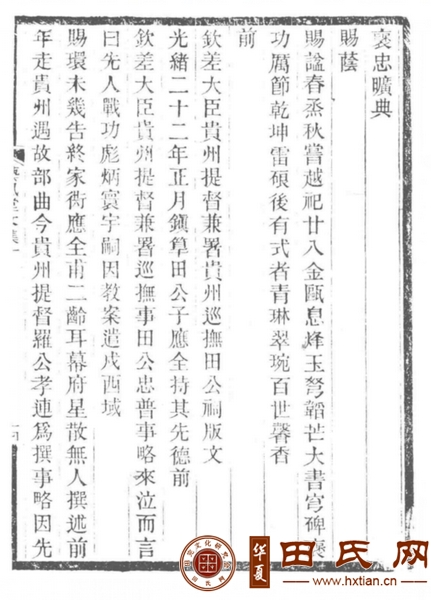 褒忠曠典
賜蔭
賜諡春烝秋嘗越祀廿入金甌息烽玉弩韜芒大書穹碑褒
功厲節乾坤雷硠後有式者青琳翠琬百世馨香
前
欽差大臣貴州提督兼署貴州巡撫田公祠版文
光緒二十二年正月鎭筸田公子應全持其先德前
欽差大臣貴州提督兼署巡撫事田公忠普事略來泣而言
曰先人戰功彪炳寰宇嗣因教案遣戍西域
賜環未幾告終家衖應全甫二齡耳幕府星散無人撰述前
年走貴州遇故部曲今貴州提督羅公孝連爲撰事略因先
華夏
田氏网
www.hxtian.cn